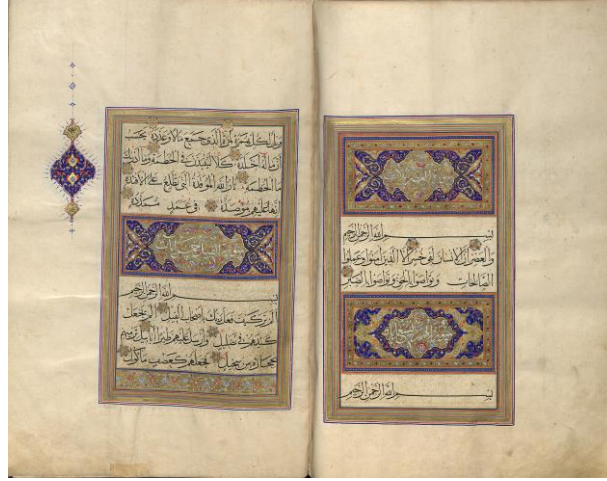 سورة العصر ثلاث آيات
بسم الله الرحمن الرحيم
والعصر إن الإنسان لفي خسر إلا الذين آمنوا وعملوا
الصالحات وتواصوا بالحق وتواصوا بالصبر
بسم الله الرحمن الرحيم
ويل لكل همزة لمزة الذي جمع مالا وعدده يحسب
أن ماله أخلده كلا لينبذن في الحطمة وما أدريك
ما الحطمة نار الله الموقدة التي تطلع على الأفئدة
إنها عليهم مؤصدة في عمد ممددة
بسم الله الرحمن الرحيم
ألم تر كيف فعل ربك بأصحاب الفيل ألم يجعل
كيدهم في تضليل وأرسل عليهم طيرا أبابيل ترميهم
بحجارة من سجيل فجعلهم كعصف مأكول